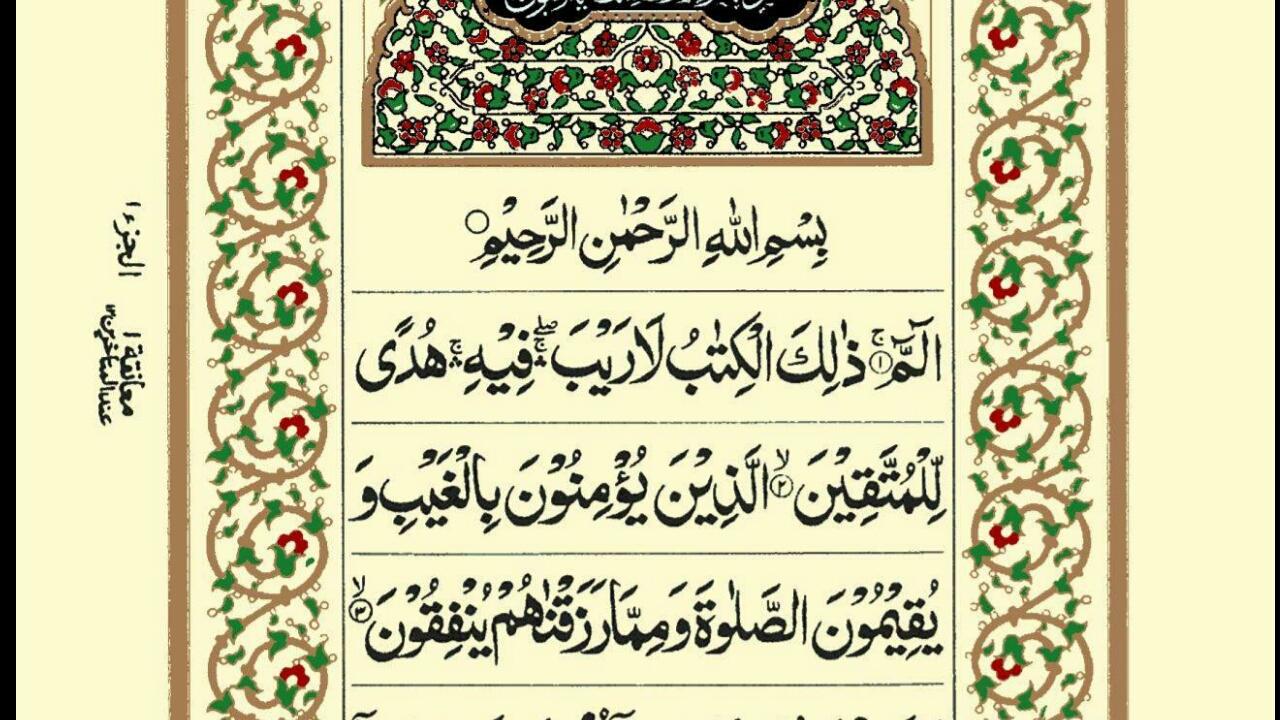 بِسْمِ اللّٰهِ الرَّحْمٰنِ الرَّحِيْمِ
الٓمّٓ ۚ‏﴿۱﴾ ذٰلِكَ الْكِتٰبُ لَا رَيْبَ ۛۖ فِيْهِ ۛۚ هُدًى
لِّلْمُتَّقِيْنَ ۙ‏﴿۲﴾ الَّذِيْنَ يُؤْمِنُوْنَ بِالْغَيْبِ وَ
يُقِيْمُوْنَ الصَّلٰوةَ وَمِمَّا رَزَقْنٰهُمْ يُنْفِقُوْنَ ۙ‏﴿۳﴾
الجزء ۱
معانقة ۱
عند المتاخرين ۱۲